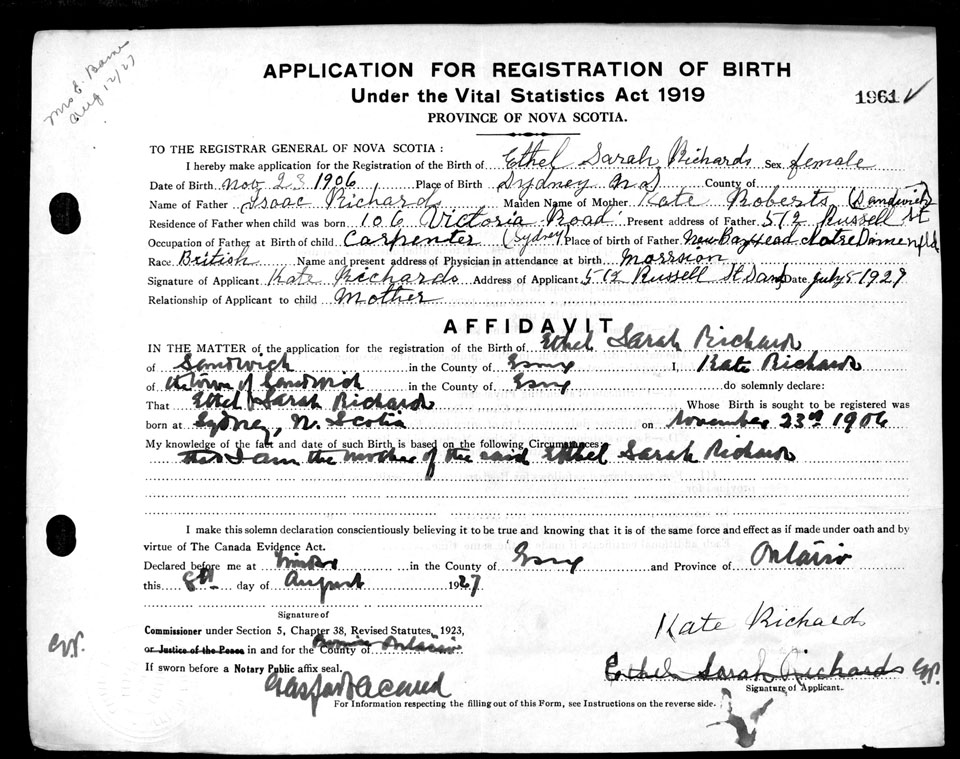 Mrs E. Bain
Aug 12/27
APPLICATION FOR REGISTRATION OF BIRTH
Under the Vital Statistics Act 1919
1961 ✓
PROVINCE OF NOVA SCOTIA.
TO THE REGISTRAR GENERAL OF NOVA SCOTIA :
I hereby make application for the Registration of the Birth of Ethel Sarah Richards Sex female
Date of Birth Nov 23 1906 Place of Birth Sydney N S County of
Name of Father Isaac Richards Maiden Name of Mother Kate Roberts (Sandwich
Residence of Father when child was born 106 Victoria Road Present address of Father 512 Russell St
Occupation of Father at Birth of child Carpenter (Sydney) Place of birth of Father New Bay Head Notre Dame nfld
Race British Name and present address of Physician in attendance at birth Morrsion
Signature of Applicant Kate Richards Address of Applicant 512 Russell St Sand Date July 5 1927
Relationship of Applicant to child Mother
AFFIDAVIT
IN THE MATTER of the application for the registration of the Birth of Ethel Sarah Richards
of Sandwich in the County of Essex I, Kate Richards
of the town of Sandwich in the County of Essex do solemnly declare:
That Ethel Sarah Richards Whose Birth is sought to be registered was
born at Sydney, N. Scotia on November 23rd 1906
My knowledge of the fact and date of such Birth is based on the following Circumstances:
that I am the mother of the said Ethel Sarah Richards
I make this solemn declaration conscientiously believing it to be true and knowing that it is of the same force and effect as if made under oath and by
virtue of The Canada Evidence Act.
Declared before me at Windsor in the County of Essex and Province of Ontario
this 8th day of August 1927
Signature of
Kate Richards
Commissioner under Section 5, Chapter 38, Revised Statutes, 1923,
or Justice of the Peace in and for the County of Ontario
If sworn before a Notary Public affix seal.
Ethel Sarah Richards
Signature of Applicant.
For Information respecting the filling out of this Form, see Instructions on the reverse side.